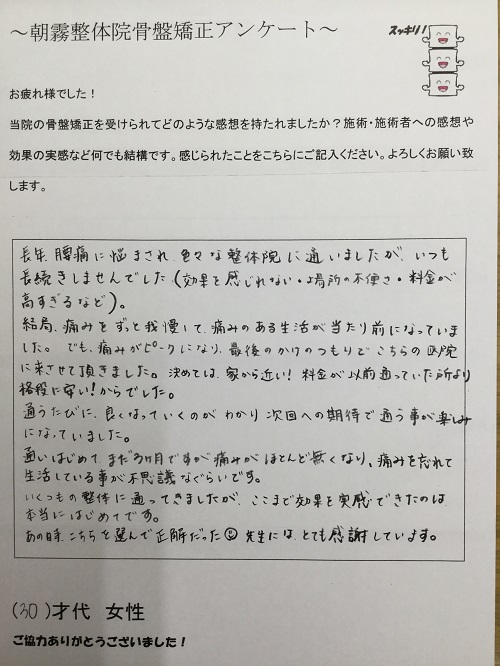 ～朝霧整体院骨盤矯正アンケート～
スッキリ!
お疲れ様でした！
当院の骨盤矯正を受けられてどのような感想を持たれましたか？施術・施術者への感想や
効果の実感など何でも結構です。感じられたことをこちらにご記入ください。よろしくお願い致
します。
長年、腰痛に悩まされ、色々な整体院に通いましたが、いつも
長続きしませんでした(効果を感じれない・場所の不便さ・料金が
高すぎるなど)。
結局、痛みをずっと我慢して、痛みのある生活が当たり前になっていま
した。でも、痛みがピークになり、最後のかけのつもりでこちらの医院
に来させて頂きました。決めては、家から近い!料金が以前通っていた所より
格段に安い!からでした。
通うたびに、良くなっていくのがわかり次回への期待で通う事が楽しみ
になっていました。
通いはじめて、まだ3ヶ月ですが痛みがほとんど無くなり、痛みを忘れて
生活している事が不思議なぐらいです。
いくつもの整体に通ってきましたが、ここまで効果を実感できたのは
本当にはじめてです。
あの時、こちらを選んで正解だった☺先生には、とても感謝しています。
(30)才代 女性
ご協力ありがとうございました！